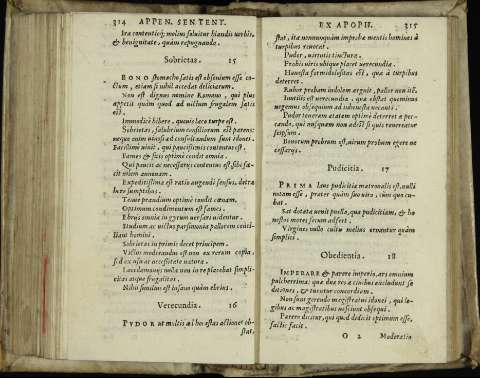 314 APPEN. SENTENT.
Ita contentio; melius soluitur blandis verbis,
& benignitate, quàm repugnando.
Sobrietas. 15
BONO stomacho satis est obsonium esse co-
ctum, etiam si nihil accedat deliciarum.
Non est dignus nomine humano, qui plus
appetit quàm quod ad victum frugalem satis
est.
Immodicè bibere, quouis loco turpe est.
Sobrietas, salubrium consiliorum est parens:
neque enim unquam ad consultandum sint idonei.
Facillimè viuit, qui paucissimis contentus est.
Fames & sitis optimè condit omnia.
Qui paucis ac necessariis contentus est, sibi fa-
cit
Expeditissima est ratio augendi census, detra-
here sumptibus.
Tenue prandium optimè condit cœnam.
Optimum condimentum est fames.
Ebriis omnia in gyrum versari videntur.
Studium ac victus parsimonia pallorem conci-
liant homini.
Sobrietas in primis decet principem.
Victus moderandus est non ex rerum copia,
sed ex usu ac necessitate naturæ.
Lacedæmoniis nulla non in re placebat simpli-
citas atque frugalitas.
Nihil similius est insano quàm ebrius.
Verecundia. 16
PVDOR at multis ab honestas actiones ob-
stat,
EX APOPH. 315
stat, ita nonnunquam improba mentis homines à
turpibus reuocat.
Pudor, virtutis tinctura.
Probis viris ubique placet verecundia.
Honesta formidolositas est, quæ à turpibus
deterret.
Rubor probam indolem arguit, pallor non itẽ.
Inutilis est verecundia, quæ obstat quominus
vrgemus obsequium ad inhonesta vocanti.
Pudor teneram ætatem optimè deterret a pec-
cando, qui nusquam non adest si quis reuereatur
seipsum.
Bonorum probrum est, virum probum egere ne-
cessariis.
Pudicitia. 17
PRIMA laus pudicitia matronalis est, nulli
notam esse, præter quàm suo viro, cum quo cu-
bat.
Sat dotata venit puella, quæ pudicitiam, & ho-
nestos mores secum adfert.
Virgines nullo cultu melius ornantur quàm
simplici.
Obedientia. 18
IMPERARE & parere imperio, ars omnium
pulcherrima: quæ duæ res à ciuibus excludunt se-
ditiones, & tuentur concordiam.
Non sunt gerendo magistratui idonei, qui le-
gibus ac magistratibus nesciunt obsequi.
Parere dicitur, qui quod dedicit optimum esse,
facit: facit.
O 2 Moderatio